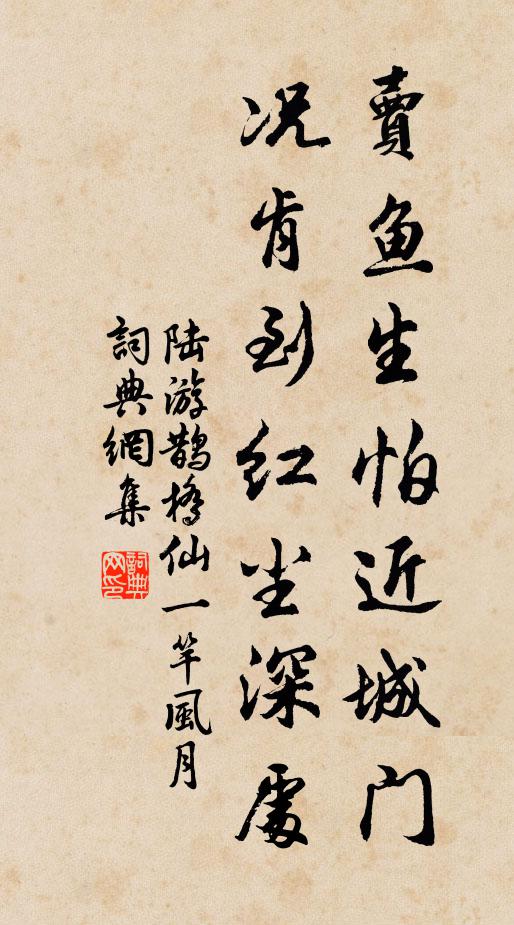 賣鱼生怕近城门
况肯到红尘深處
陆游鹊橋仙一竿風月
詞典網集
詞典網印